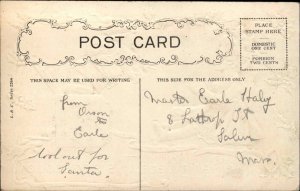 POST CARD
PLACE
STAMP HERE
DOMESTIC
ONE CENT
FOREIGN
TWO CENTS
THIS SPACE MAY BE USED FOR WRITING
THIS SIDE FOR THE ADDRESS ONLY
from
Orson
to
Earle
look out for
Santa
Master Earle Haly
8 Lathrop St
Salem
Mass.